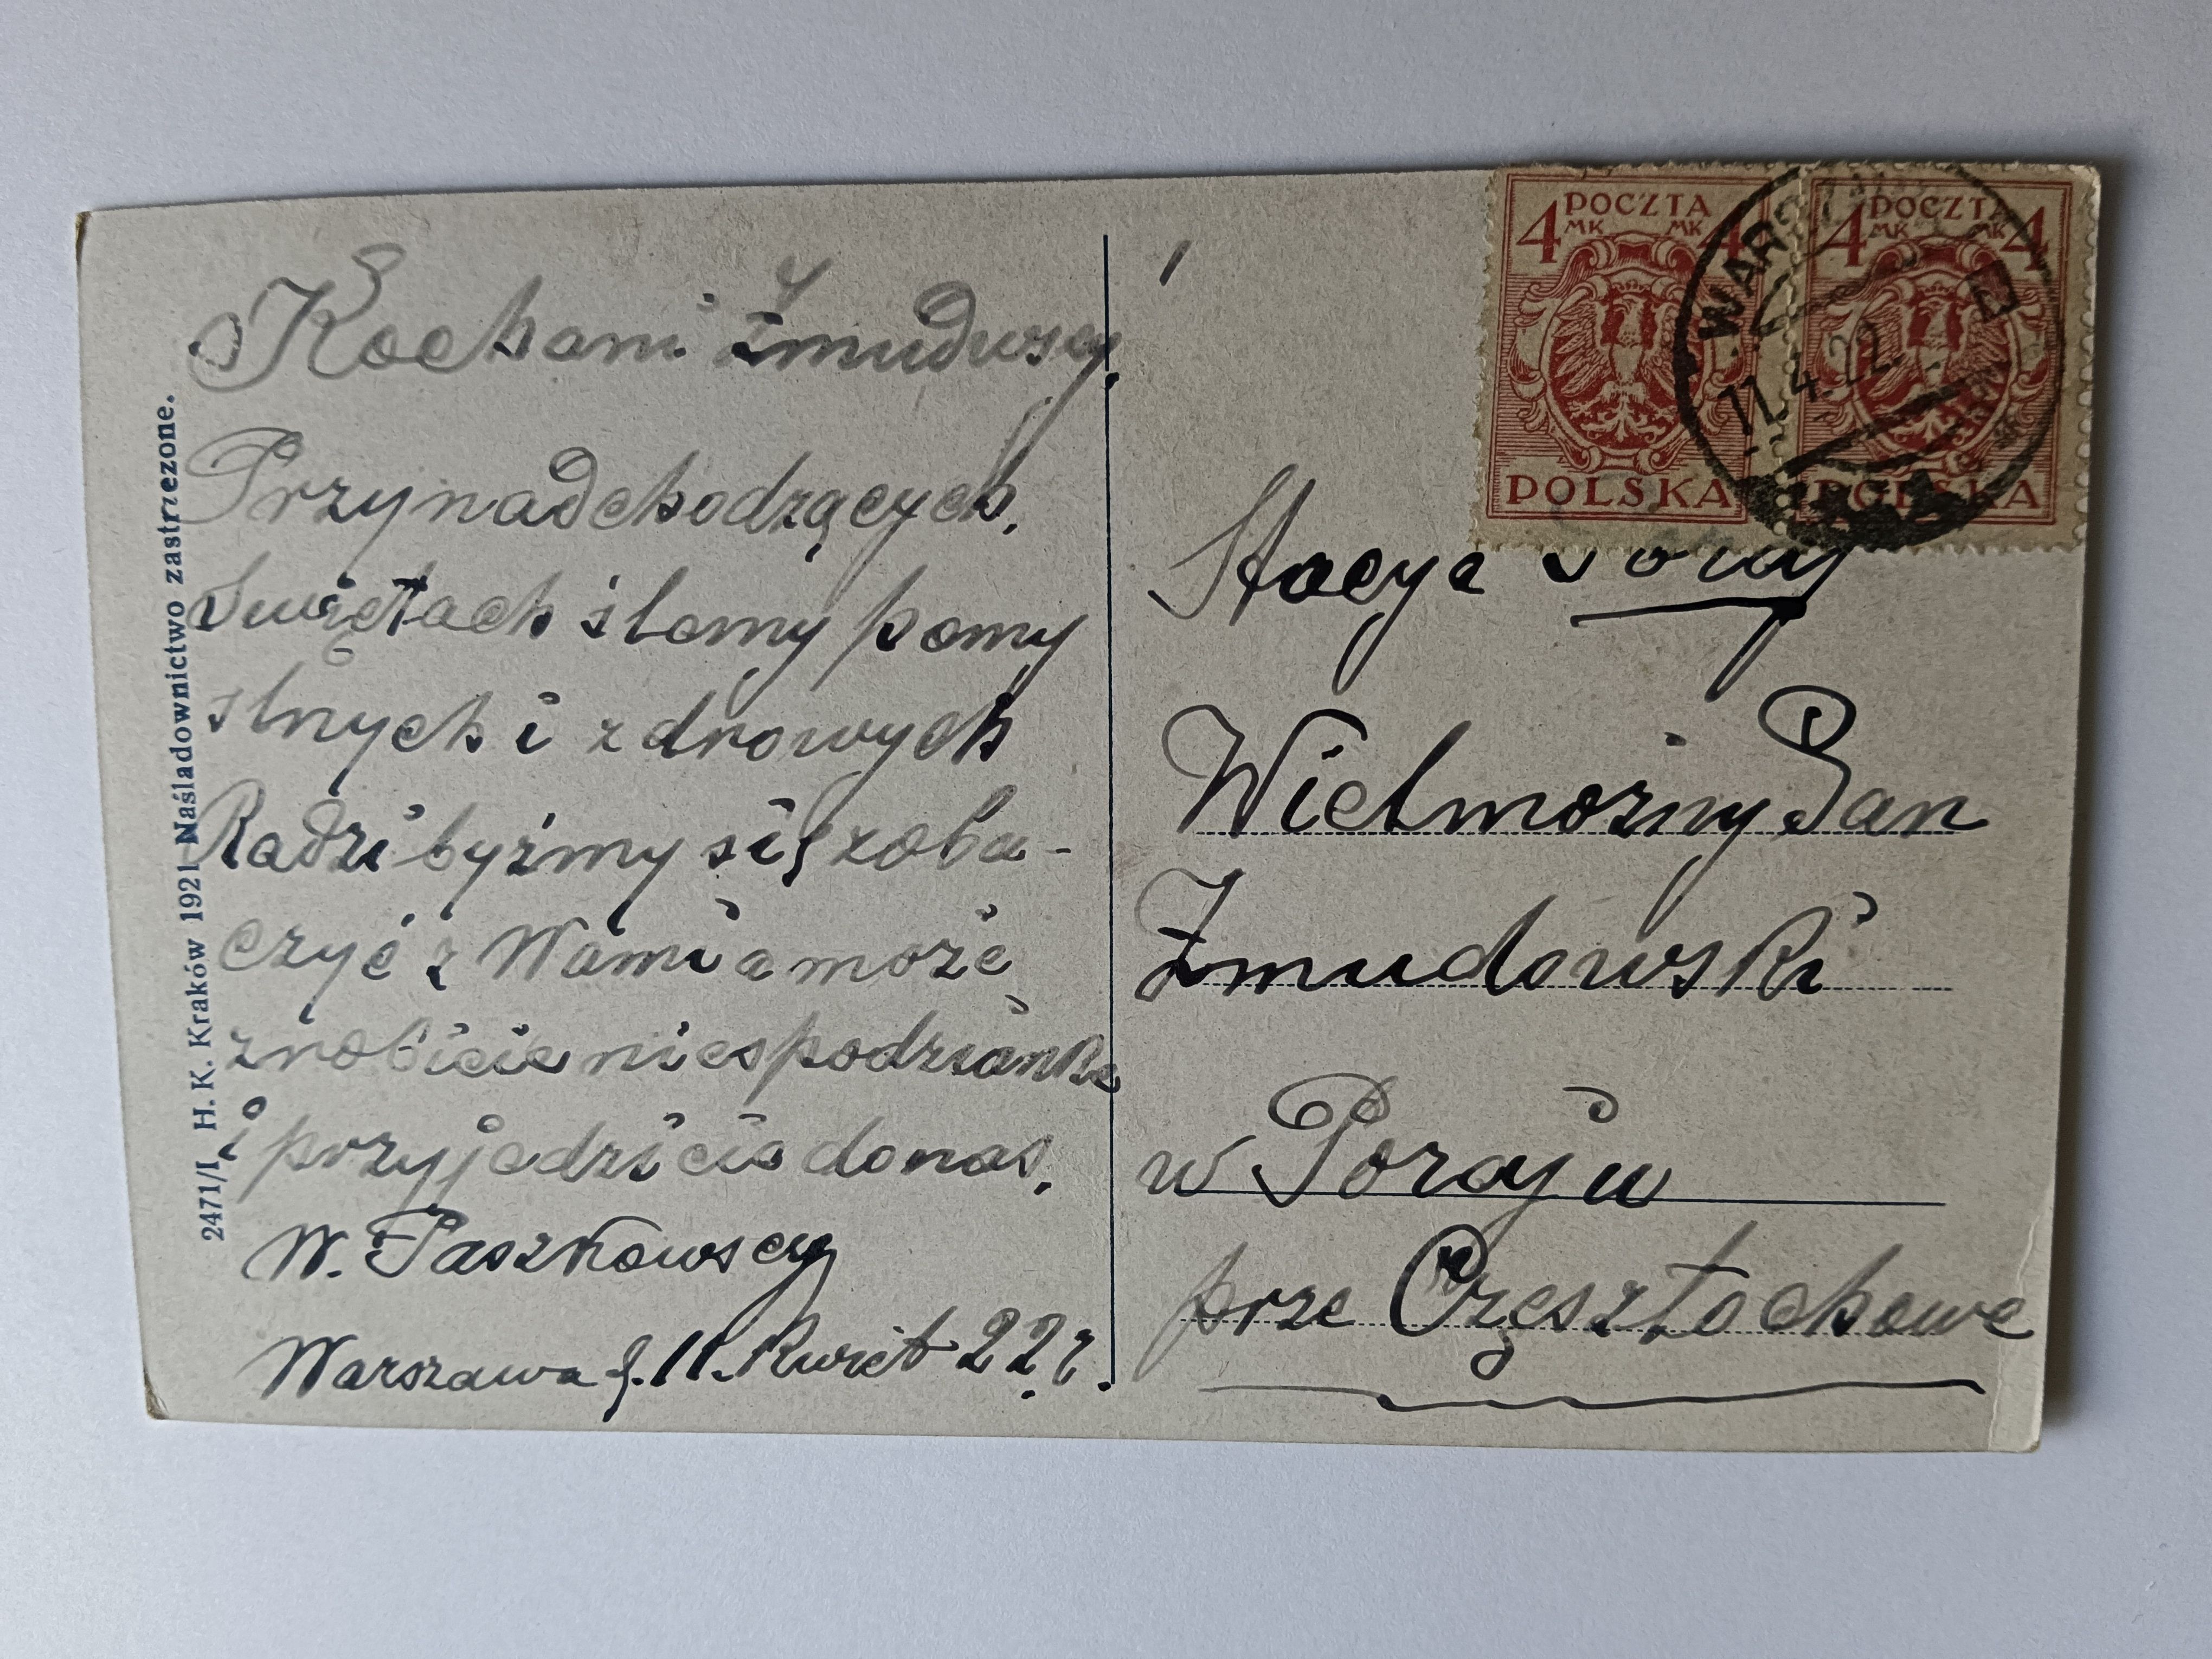 Kochani Żmudwscy,
Przy nadchodzących,
Swiętach słamy pomy
slnych i zdrowych
Radzi byśmy się zoba-
czyć z Wami a może
zrobicie niespodziankę
i przyjedzicie do nas,
W. Paszkowscy
Warszawa d. 11. Kwiet 22 r.
2471/I H. K. Kraków 1921 Naśladownictwo zastrzeżone.
4 POCZTA 4
MK MK
POLSKA
4 POCZTA 4
MK MK
POLSKA
11.4.22.
Stacya Poraj
Wielmożny Pan
Żmudowski
w Poraju
prze Częstochowe